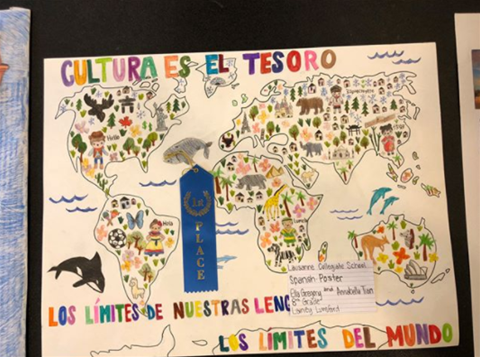 CULTURA ES EL TESORO
Hola
1st
PLACE
Lausanne Collegiate School
Spanish Poster
Ella Gregory and Annabella Tran
8th Grade
LOS LÍMITES DE NUESTRAS LENG
LOS LÍMITES DEL MUNDO